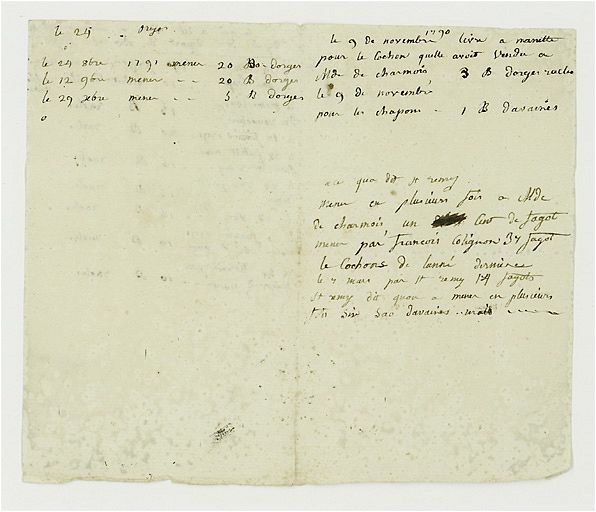 le 24 orge
le 24 8bre 1791 mener 20 B dorges
le 12 9bre mener -- 20 B dorges
le 29 xbre mener -- 5 B dorges
le 9 de novembre 1790 livré a nanette
pour le Cochon quelle avoit vendu a
Mde de charmois 3 B dorges
le 9 de novembre
pour les chapons -- 1 B davaines
a ce qua dit st remy
mener en plusieurs fois a Mde
de charmois un Cent de fagot
mener par françois Colignon 37 fagot
le Cochons de lanné derniere
le 7 mars par st remy 14 fagots
st remy dit quon a mener en plusieurs
fois six sac davaines